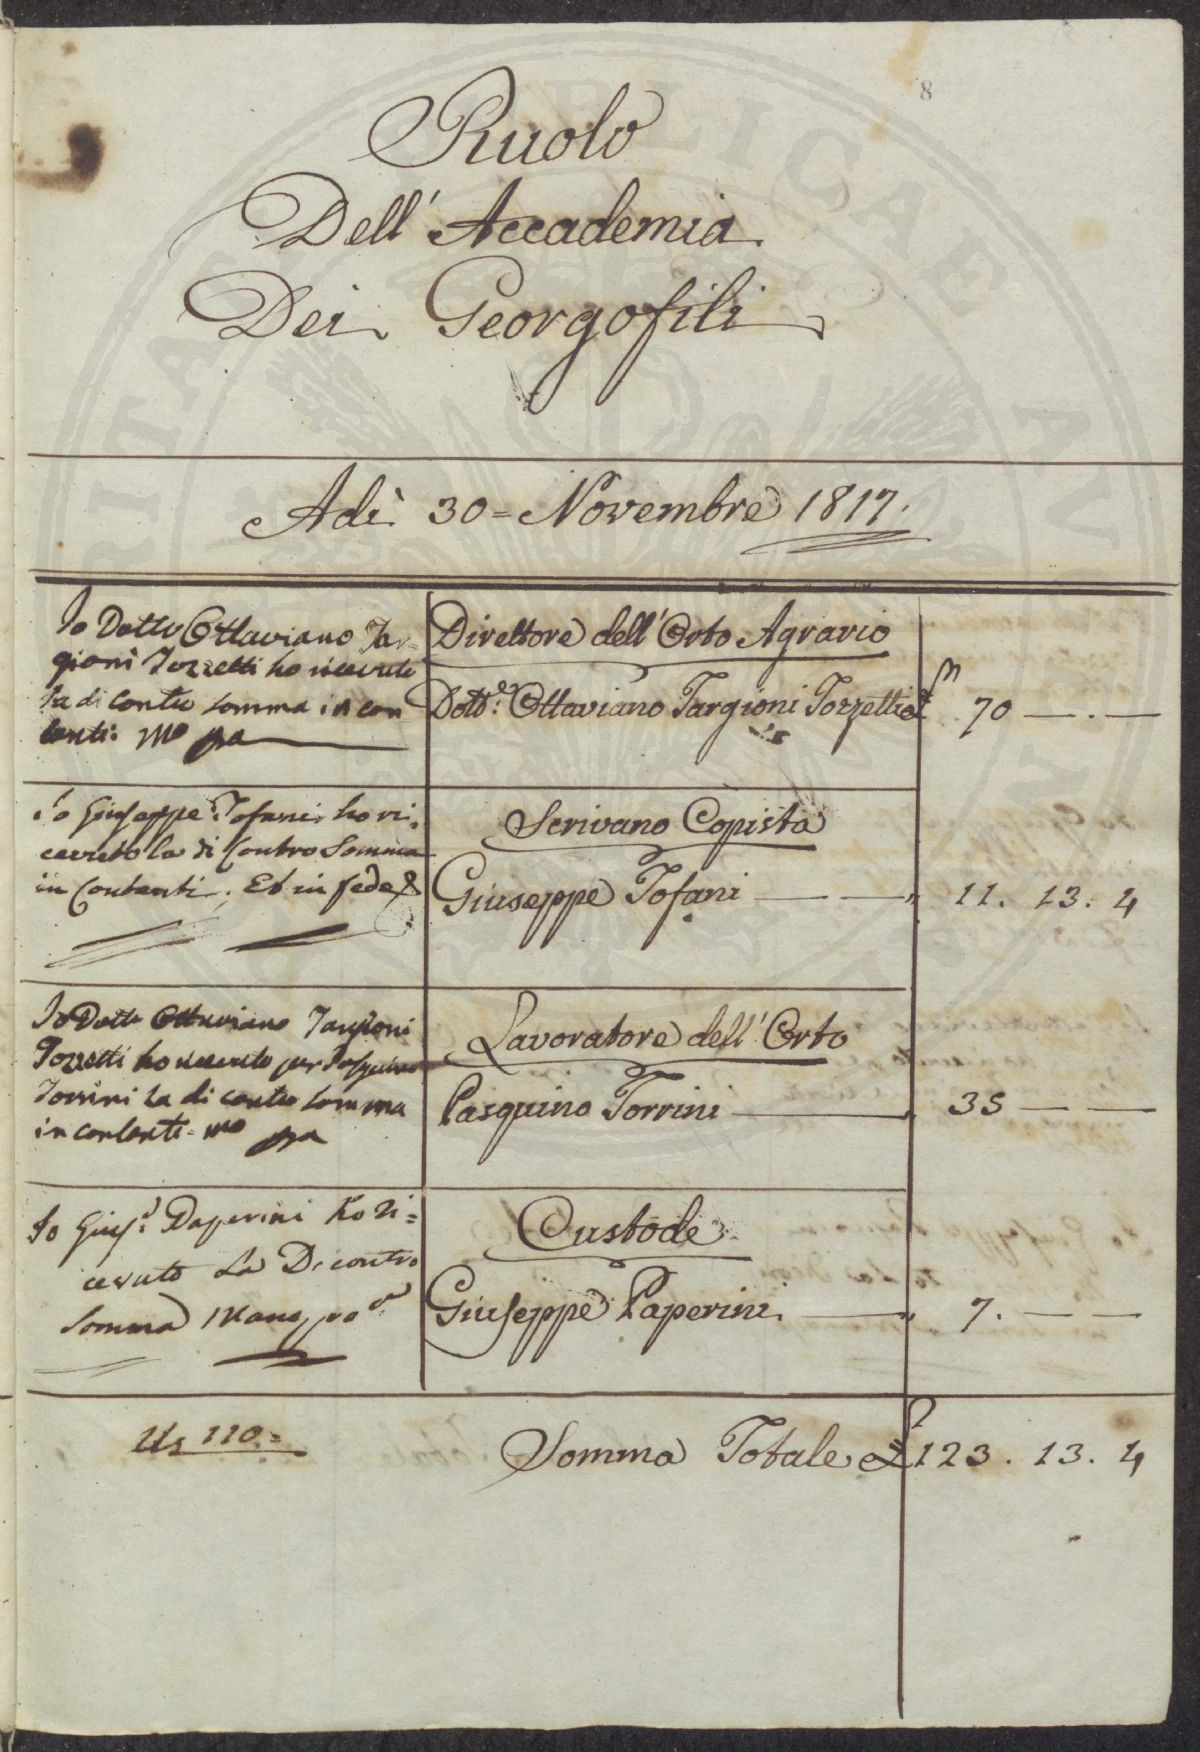 8
Ruolo
Dell' Accademia
Dei Georgofili
Adì 30 = Novembre 1817.
Io Dottr Ottaviano Tar=
gioni Tozzetti ho ricevuto
la di contro somma in con
tanti. mo pa
Direttore dell' Orto Agrario
Dott.e Ottaviano Targioni Tozzetti £ 70 — . —
Io Giuseppe Tofani ho ri,
cevuto la di Contro Somma
in Contanti, Et in fede
Scrivano Copista
Giuseppe Tofani — — " 11. 13. 4
Io Dotte Ottaviano Targioni
Tozzetti ho ricevuto per Pasquino
Torrini la di contro somma
in contanti = mo pa
Lavoratore dell' Orto
Pasquino Torrini — " 35 — —
Io Gius.e Paperini Ho ri=
cevuto La Di contro
Somma Mano po a
Custode
Giuseppe Paperini — " 7. — —
Us 110 =
Somma Totale £ 123. 13. 4